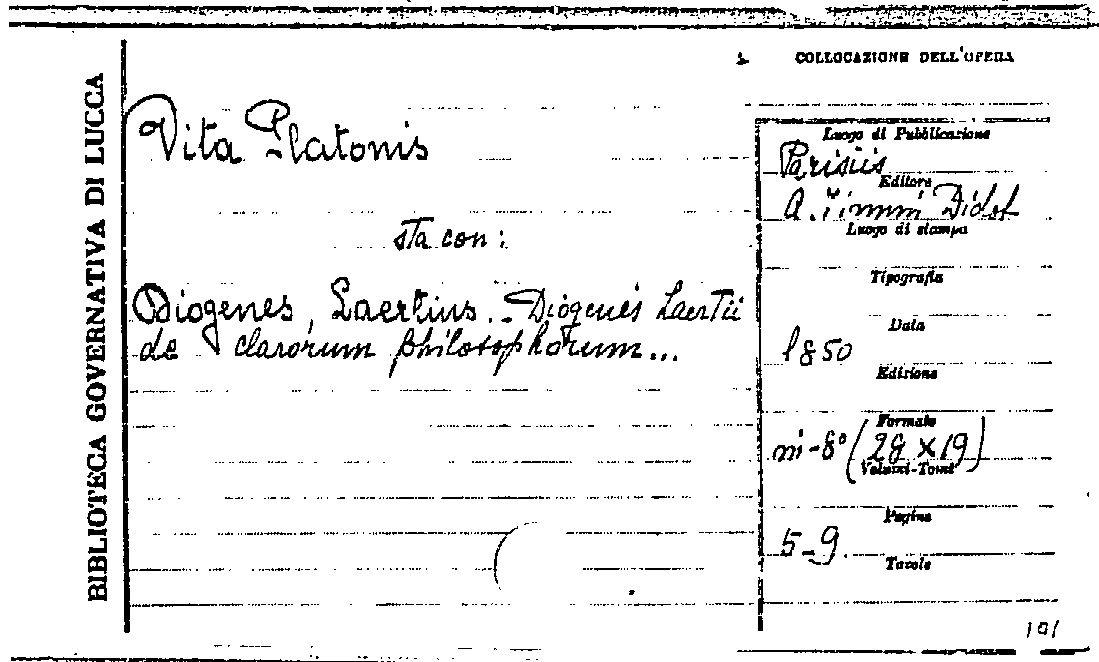 BIBLIOTECA GOVERNATIVA DI LUCCA
COLLOCAZIONE DELL'OPERA
Vita Platonis
sta con:
Diogenes, Laertius. - Diogenis Laertii
de clarorum philosophorum...
Luogo di Pubblicazione
Parisiis
Editore
A. Firmin Didot
Luogo di stampa
Tipografia
Data
1850
Edizione
Formato
in-8° (28 x 19)
Volumi-Tomi
Pagine
5-9.
Tavole
101